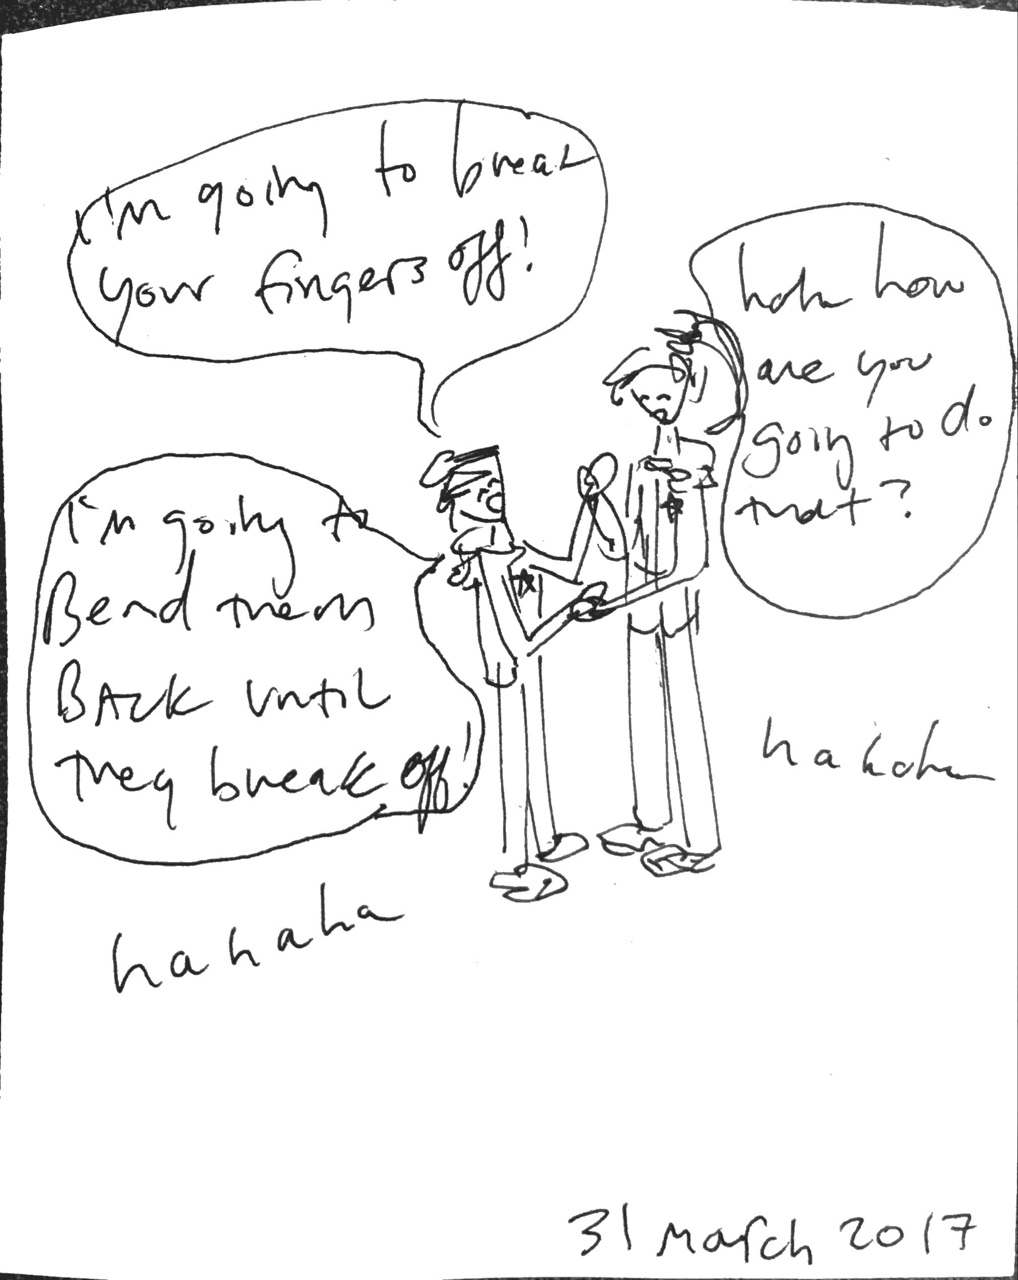 I'm going to break
your fingers off!
haha how
are you
going to do
that?
I'm going to
Bend them
BACK until
they break off!
hahaha
hahaha
31 March 2017